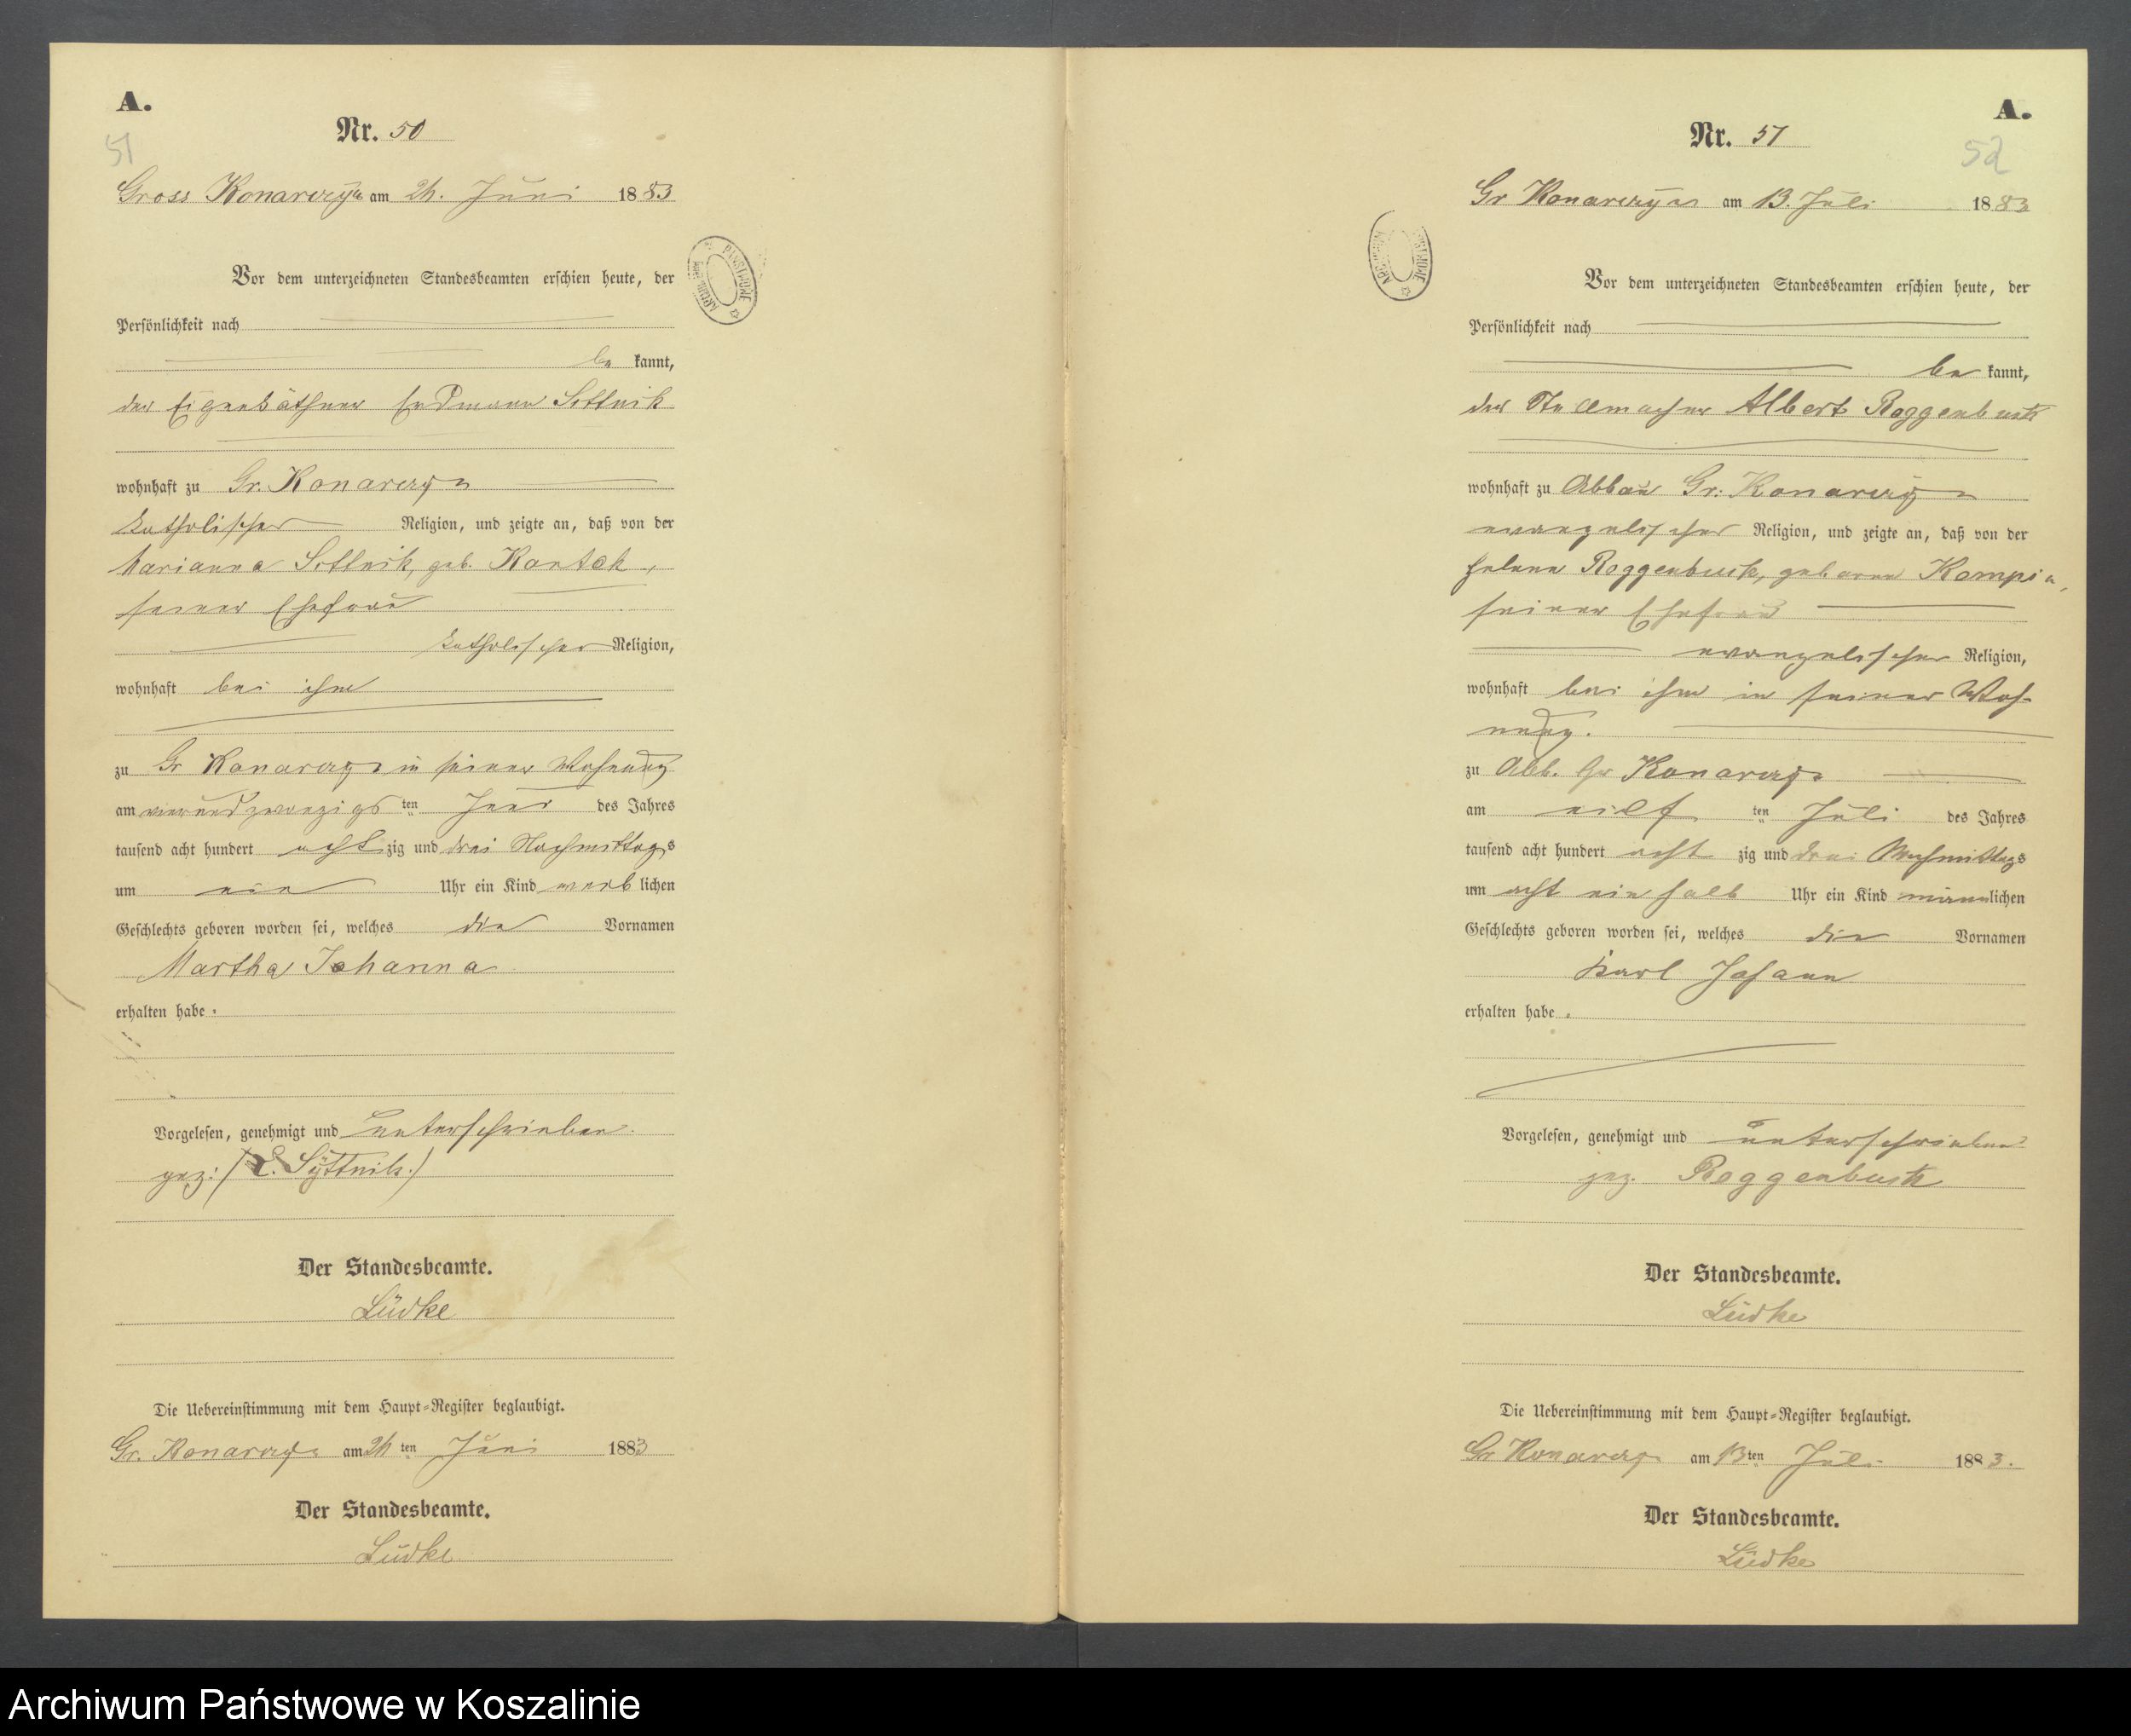 A.
Nr. 50
51
Gross Konarczyn am 24. Juni 1883
Vor dem unterzeichneten Standesbeamten erschien heute, der
Persönlichkeit nach
be kannt,
der Eigenkäthner Erdmann Sittnik
wohnhaft zu Gr. Konarczyn
katholischer Religion, und zeigte an, daß von der
Marianna Sittnik, geb.
seiner Ehefrau
katholischer Religion,
wohnhaft bei ihm
zu Gr Konarczyn in seiner Wohnung
am vierundzwanzigs ten Juni des Jahres
tausend acht hundert acht zig und drei Nachmittags
um ein Uhr ein Kind weib lichen
Geschlechts geboren worden sei, welches die Vornamen
Martha Johanna
erhalten habe.
Vorgelesen, genehmigt und unterschrieben.
gez: (E. Syttnik.)
Der Standesbeamte.
Lüdke
Die Uebereinstimmung mit dem Haupt-Register beglaubigt.
Gr. Konarczyn am 24 ten Juni 1883
Der Standesbeamte.
Lüdke
A.
Nr. 51
52
Gr Konarczyn am 13. Juli 1883
Vor dem unterzeichneten Standesbeamten erschien heute, der
Persönlichkeit nach
be kannt,
der Stellmacher Albert Roggenbuck
wohnhaft zu Abbau Gr. Konarczyn
evangelischer Religion, und zeigte an, daß von der
Helene Roggenbuck, geborne Kompin,
seiner Ehefrau
evangelischer Religion,
wohnhaft bei ihm in seiner Woh-
nung.
zu Abb. Gr Konarczyn
am eilf ten Juli des Jahres
tausend acht hundert acht zig und drei Nachmittags
um acht ein halb Uhr ein Kind männlichen
Geschlechts geboren worden sei, welches die Vornamen
Karl Johann
erhalten habe.
Vorgelesen, genehmigt und unterschrieben
gez. Roggenbuck
Der Standesbeamte.
Lüdke
Die Uebereinstimmung mit dem Haupt-Register beglaubigt.
Gr Konarczyn am 13 ten Juli 1883.
Der Standesbeamte.
Lüdke
Archiwum Państwowe w Koszalinie